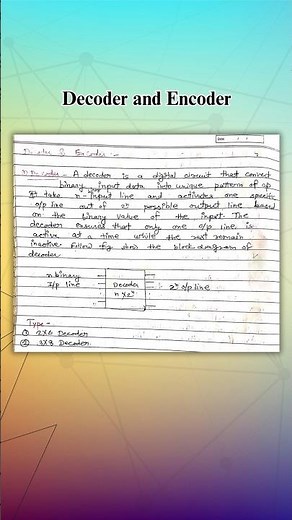 Decoder and Encoder
Decoder & Encoder :-
Decoder :- A decoder is a digital circuit that convert
binary input data into unique pattern of o/p
It take n-input line and activates one specific
o/p line out of 2ⁿ possible output line based
on the binary value of the input. The
decoder ensures that only one o/p line is
active at a time while the rest remain
inactive. Follow fig show the block diagram of
decoder
n binary
I/p line
Decoder
n x 2ⁿ
2ⁿ o/p line
Type -
① 2x4 Decoder
② 3x8 Decoder.